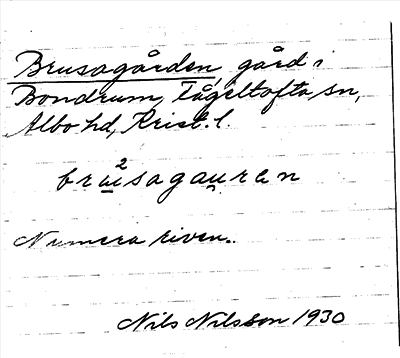 Brusagården, gård i
Bondrum, Fågeltofta sn,
Albo hd, Krist. l.
brusagauren
Numera riven.
Nils Nilsson 1930